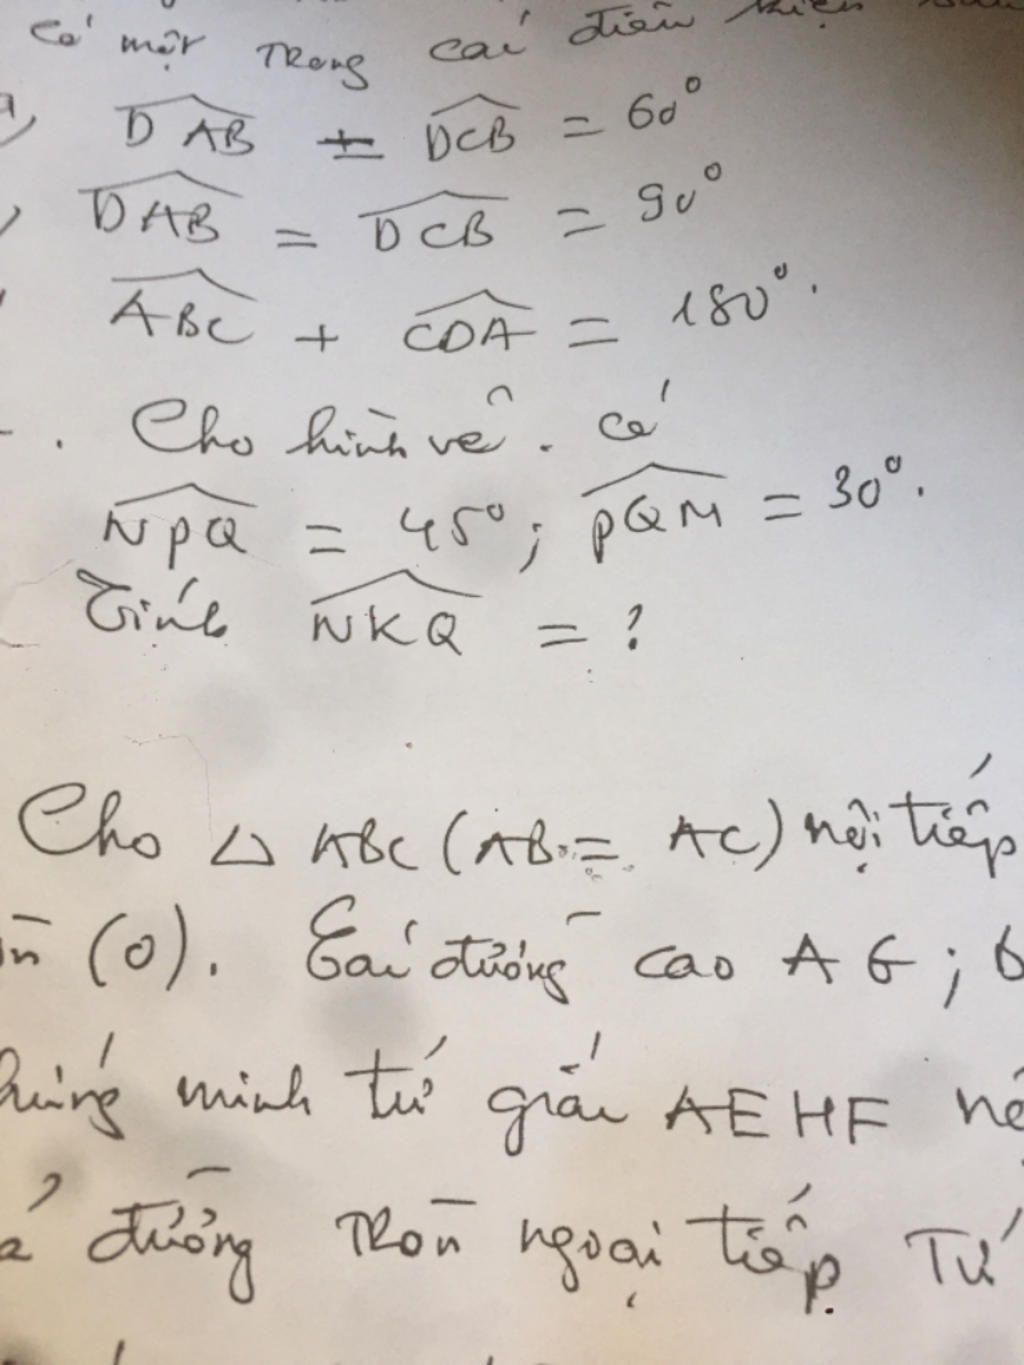 có một trong các điều kiện sau
a, DAB = DCB = 60°
, DAB = DCB = 90°
ABC + CDA = 180°.
. Cho hình vẽ. có
NPQ = 45°; PQM = 30°.
Tính NKQ = ?
Cho △ ABC (AB = AC) nội tiếp
(O). Các đường cao AG;
minh tứ giác AEHF
đường tròn ngoại tiếp Tứ